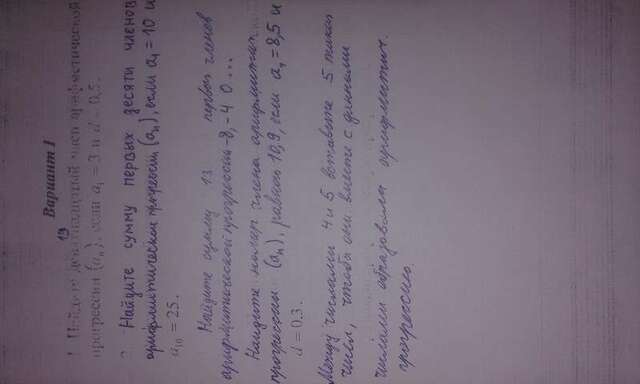 Вариант I
19
1. Найдите девятнадцатый член арифметической
прогрессии {aₙ}, если a₁ = 3 и d = 0,5.
2. Найдите сумму первых десяти членов
арифмитической прогресии (aₙ), если a₁ = 10 и
a₁₀ = 25.
Найдите сумму 13 первых членов
арифмитической прогрессии -8, -4 0 ...
Найдите номер члена арифмитич.
прогрессии (aₙ), равного 10,9, если a₁ = 8,5 и
d = 0,3.
Между числами 4 и 5 вставьте 5 таких
чисел, чтобы они вместе с данными
числами образовали арифмитич.
прогрессию.